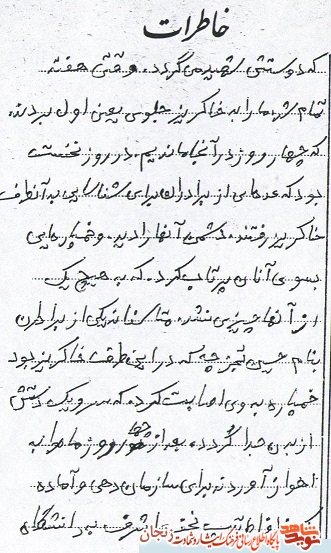 خاطرات
که دوستش شهید می گردد. وقتی هفته
تمام شد ما را به خاکریز جلویی یعنی اول بردند.
که چهار روز در آنجا ماندیم. در روز نخست
بود که عده‌ای از برادران برای شناسایی به آنطرف
خاکریز رفتند. دشمن آنها را دید و خمپاره‌هایی
بسوی آنان پرتاب کرد. که به هیچ یک
از آنها چیزی نشد. متأسفانه یکی از برادران
بنام حسین که در این طرف خاکریز بود
خمپاره به وی اصابت کرد که سر و یک دستش
از بدن جدا گردد. بعد از چهار روز ما را به
اهواز آوردند برای سازمان دهی و آماده
نوید شاهد
پایگاه اطلاع رسانی فرهنگ ایثار و شهادت زنجان